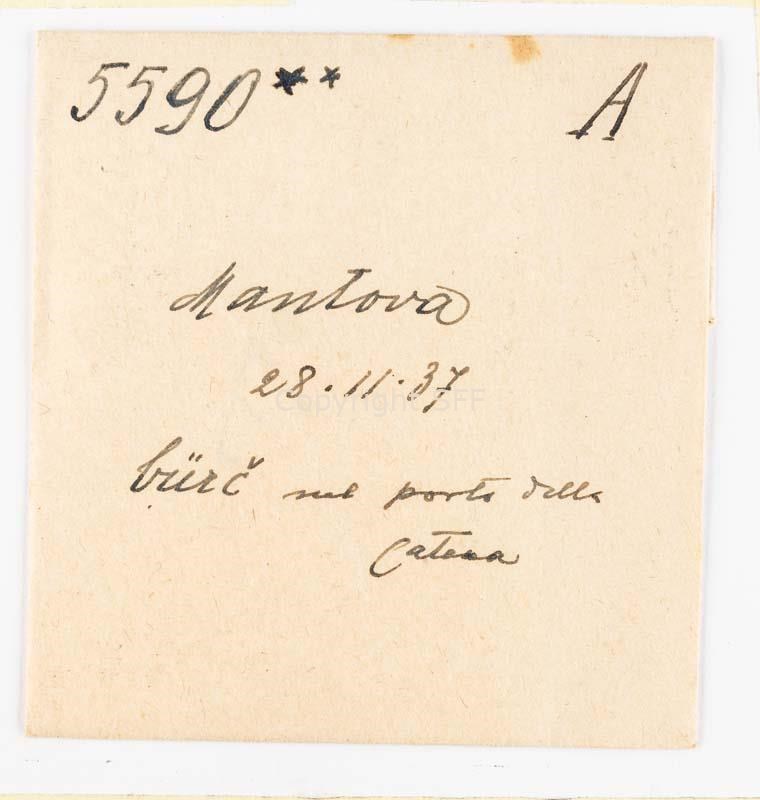 5590** A
Mantova
28.11.37
Copyright SFF
bürč nel porto della
Catena